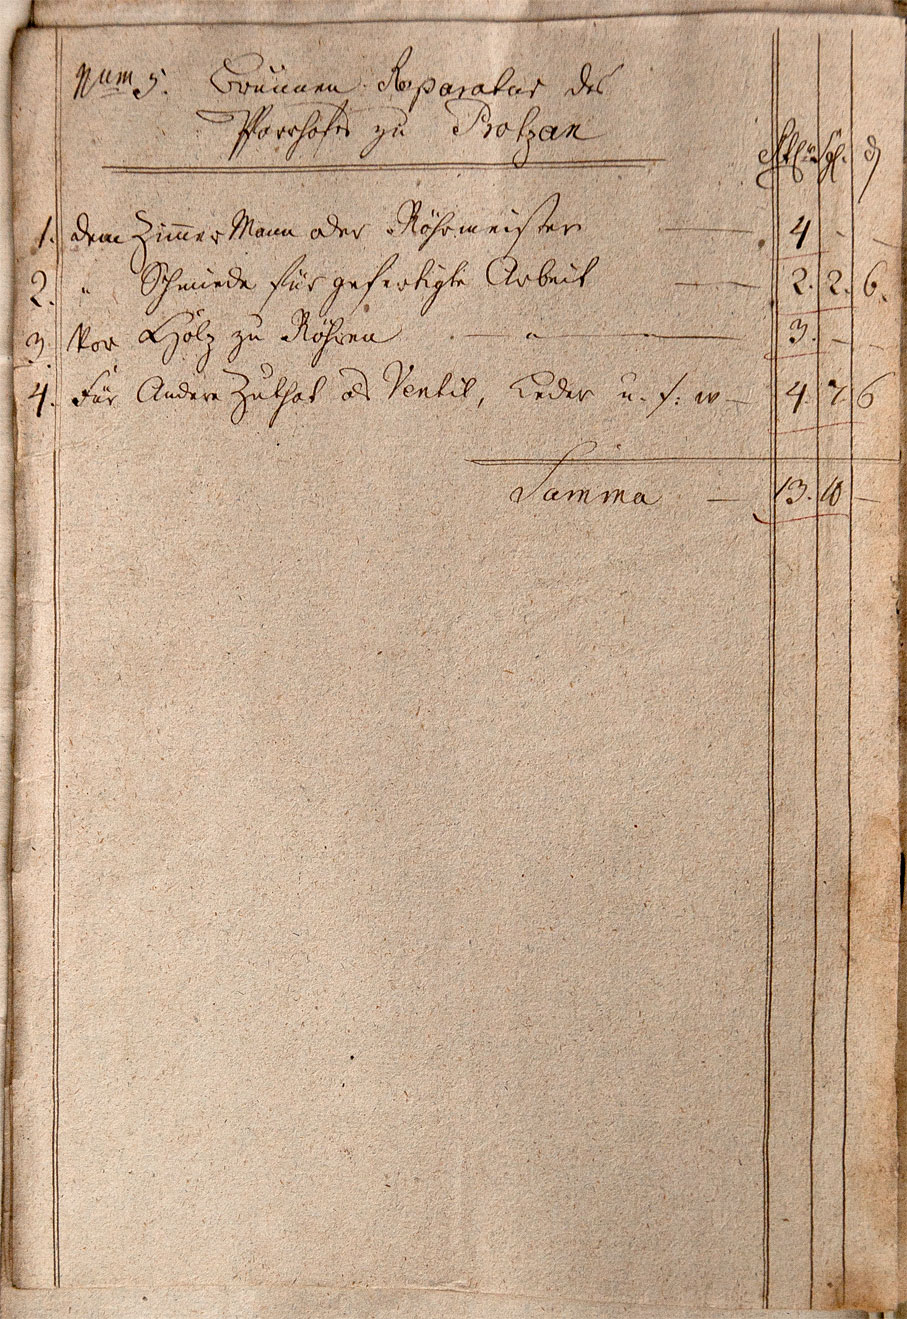 Num 5. Brunnen Reparatur des
Pfarrhofes zu Protzan
Rthlr Sgl. d
1. dem Zimmer Mann oder Röhrmeister — 4 - -
2. " Schmiede für gefertigte Arbeit — 2. 2. 6.
3. Vor Holz zu Röhren — " — 3. - -
4. Für Andere Zuthat als Ventil, Leder u. s. w — 4. 7. 6
Summa — 13. 10 —